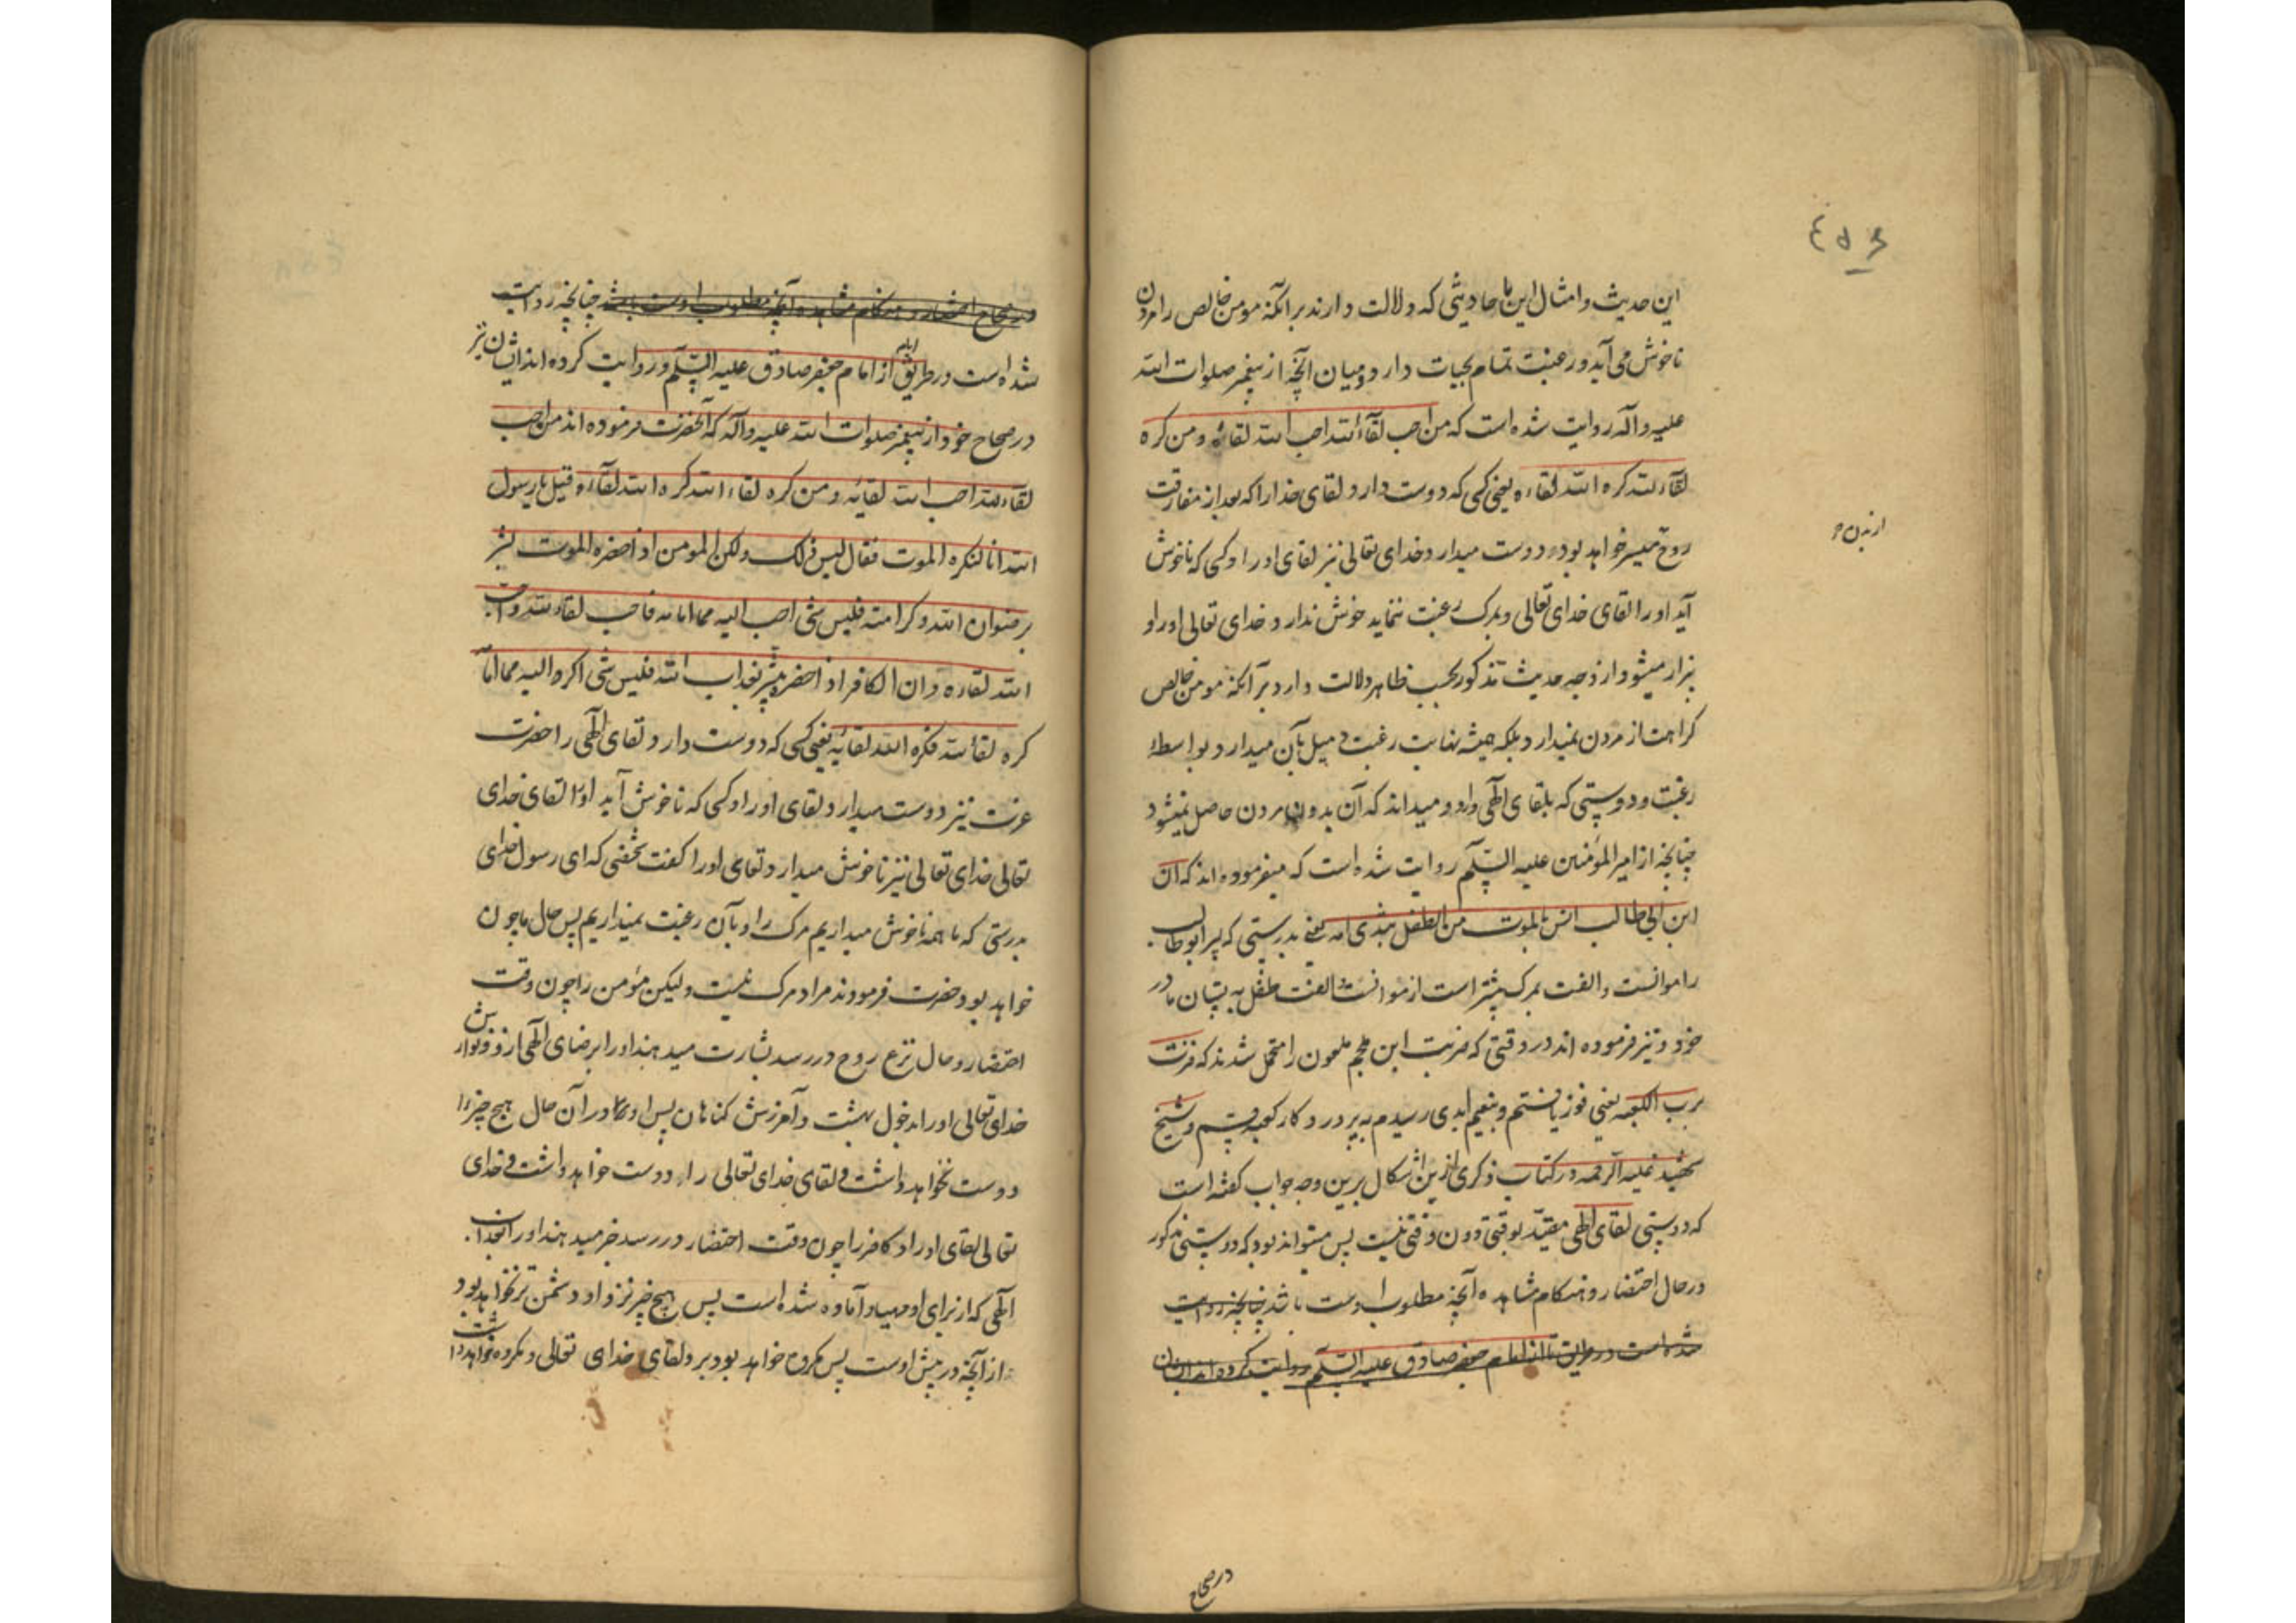 ٤٥٤
این حدیث و امثال این با حادیثی که دلالت دارند برآنکه مومن خالص را مردن
ناخوش می آید و رغبت تمام بحیات دارد و میان آنچه از پیغمبر صلوات الله
علیه و آله روایت شده است که من احب لقآء الله احب الله لقائه و من کره
لقآء الله کره الله لقاءه یعنی کسی که دوست دارد لقای خدا را که بعد از مفارقت
روح میسر خواهد بود دوست میدارد خدای تعالی نیز لقای او را و کسی که ناخوش
از بدن
آید او را لقای خدای تعالی و بمرک رغبت ننماید خوش ندارد خدای تعالی او را و
بیزار میشود از وجه حدیث مذکور بحسب ظاهر دلالت دارد برآنکه مومن خالص
کراهت از مردن نمیدارد بلکه همیشه نهایت رغبت و میل بآن میدارد بواسطهٔ
رغبت و دوستی که بلقای الهی دارد و میداند که آن بدون مردن حاصل نمیشود
چنانچه از امیرالمؤمنین علیه السلم روایت شده است که میفرموده اند که ان
ابن ابی طالب انس بالموت من الطفل بثدی امه یعنی بدرستی که پسر ابوطالب
را موانست و الفت بمرک بیشتر است از موانست و الفت طفل به پستان مادر
خود و نیز فرموده اند در وقتی که ضربت ابن ملجم ملعون را متحمل شدند که فزت
برب الکعبه یعنی فوز یافتم و بنعیم ابدی رسیدم به پروردکار کعبه قسم و شیخ
شهید علیه الرحمه در کتاب ذکری ازین اشکال برین وجه جواب کفته است
که دوستی لقای الهی مقید بوقتی دون وقتی نیست پس میتواند بود که دوستی مذکور
در حال احتضار و هنکام مشاهده آنچه مطلوب اوست باشد چنانچه روایت
شده است در طریق ما از امام جعفر صادق علیه السلم روایت کرده اند ایشان
در صحاح
در صحاح احتضار و هنکام مشاهده آنچه مطلوب اوست باشد چنانچه روایت
شده است در طریق از امام جعفر صادق علیه السلم و روایت کرده اند ایشان نیز
در صحاح خود از پیغمبر صلوات الله علیه و آله که آنحضرت فرموده اند من احب
لقاء الله احب الله لقائه و من کره لقاء الله کره الله لقآءه قیل یا رسول
الله انا لنکره الموت فقال لیس ذلک ولکن المومن اذا حضره الموت بشر
برضوان الله و کرامته فلیس شی احب الیه مما امامه فاحب لقاء الله و احب
الله لقاءه و ان الکافر اذا حضر بشر بعذاب الله فلیس شی اکره الیه مما امامه
کره لقاء الله فکره الله لقائه یعنی کسی که دوست دارد لقای الهی را حضرت
عزت نیز دوست میدارد لقای او را و کسی که ناخوش آید او را لقای خدای
تعالی خدای تعالی نیز ناخوش میدارد لقای او را کفت شخصی که ای رسول خدای
بدرستی که ما همه ناخوش میداریم مرک را و بآن رغبت نمیداریم پس حال ما چون
خواهد بود حضرت فرمودند مراد مرک نیست ولیکن مؤمن را چون وقت
احتضار و حال نزع روح در رسد بشارت میدهند او را برضای الهی ازو و نوازش
خدای تعالی او را بدخول بهشت و آمرزش کناهان پس او در آن حال هیچ چیز را
دوست نخواهد داشت و لقای خدای تعالی را دوست خواهد داشت و خدای
تعالی لقای او را و کافر را چون وقت احتضار در رسد خبر میدهند او را بعذاب
الهی که از برای او مهیا و آماده شده است پس هیچ چیز نزد او دشمن تر نخواهد بود
از آنچه در پیش اوست پس مکروه خواهد بود بر و لقای خدای تعالی و مکروه خواهد داشت